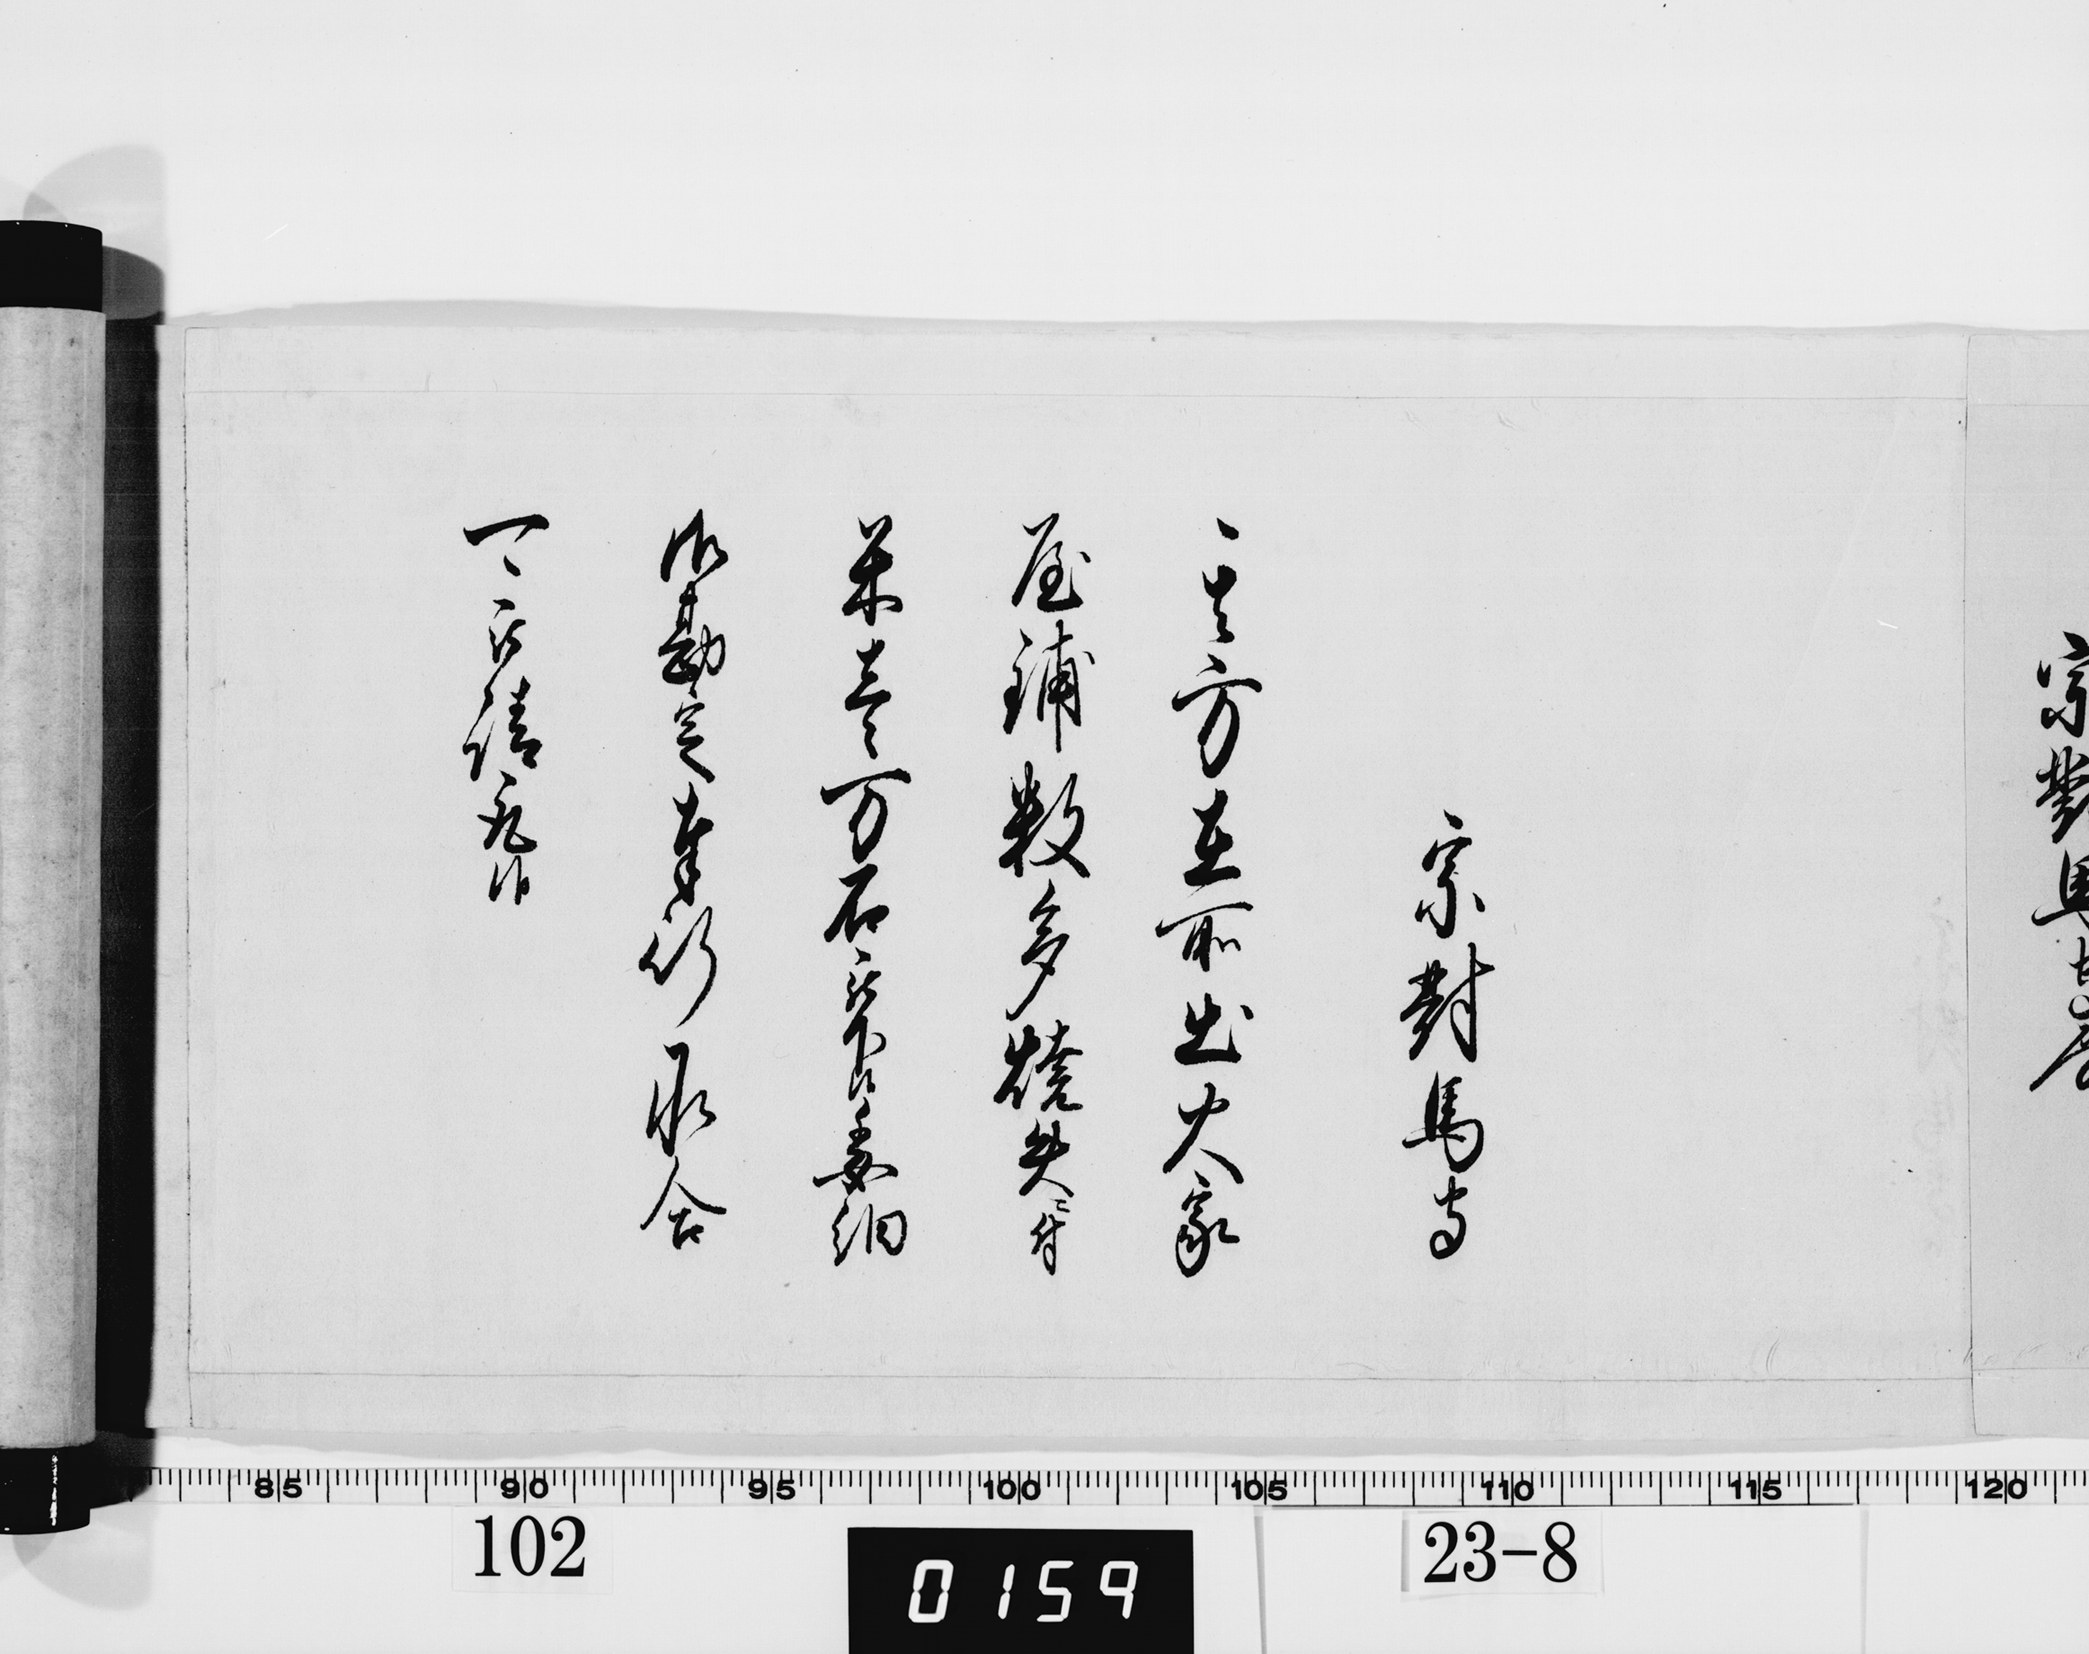 宗對馬
宗對馬守
其方在所出火家
屋鋪数多燒失ニ付
米壱万石被下候委細
御勘定奉行承合
可被請取候
102
0159
23-8
85 90 95 100 105 110 115 120